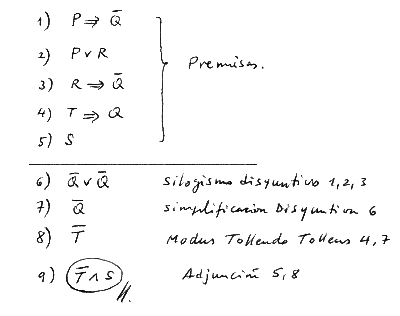 1) P ⇒ Q̄
2) P ∨ R
3) R ⇒ Q̄
4) T ⇒ Q
5) S
Premisas.
6) Q̄ ∨ Q̄ Silogismo disyuntivo 1, 2, 3
7) Q̄ simplificación Disyuntiva 6
8) T̄ Modus Tollendo Tollens 4, 7
9) T̄ ∧ S Adjunción 5, 8